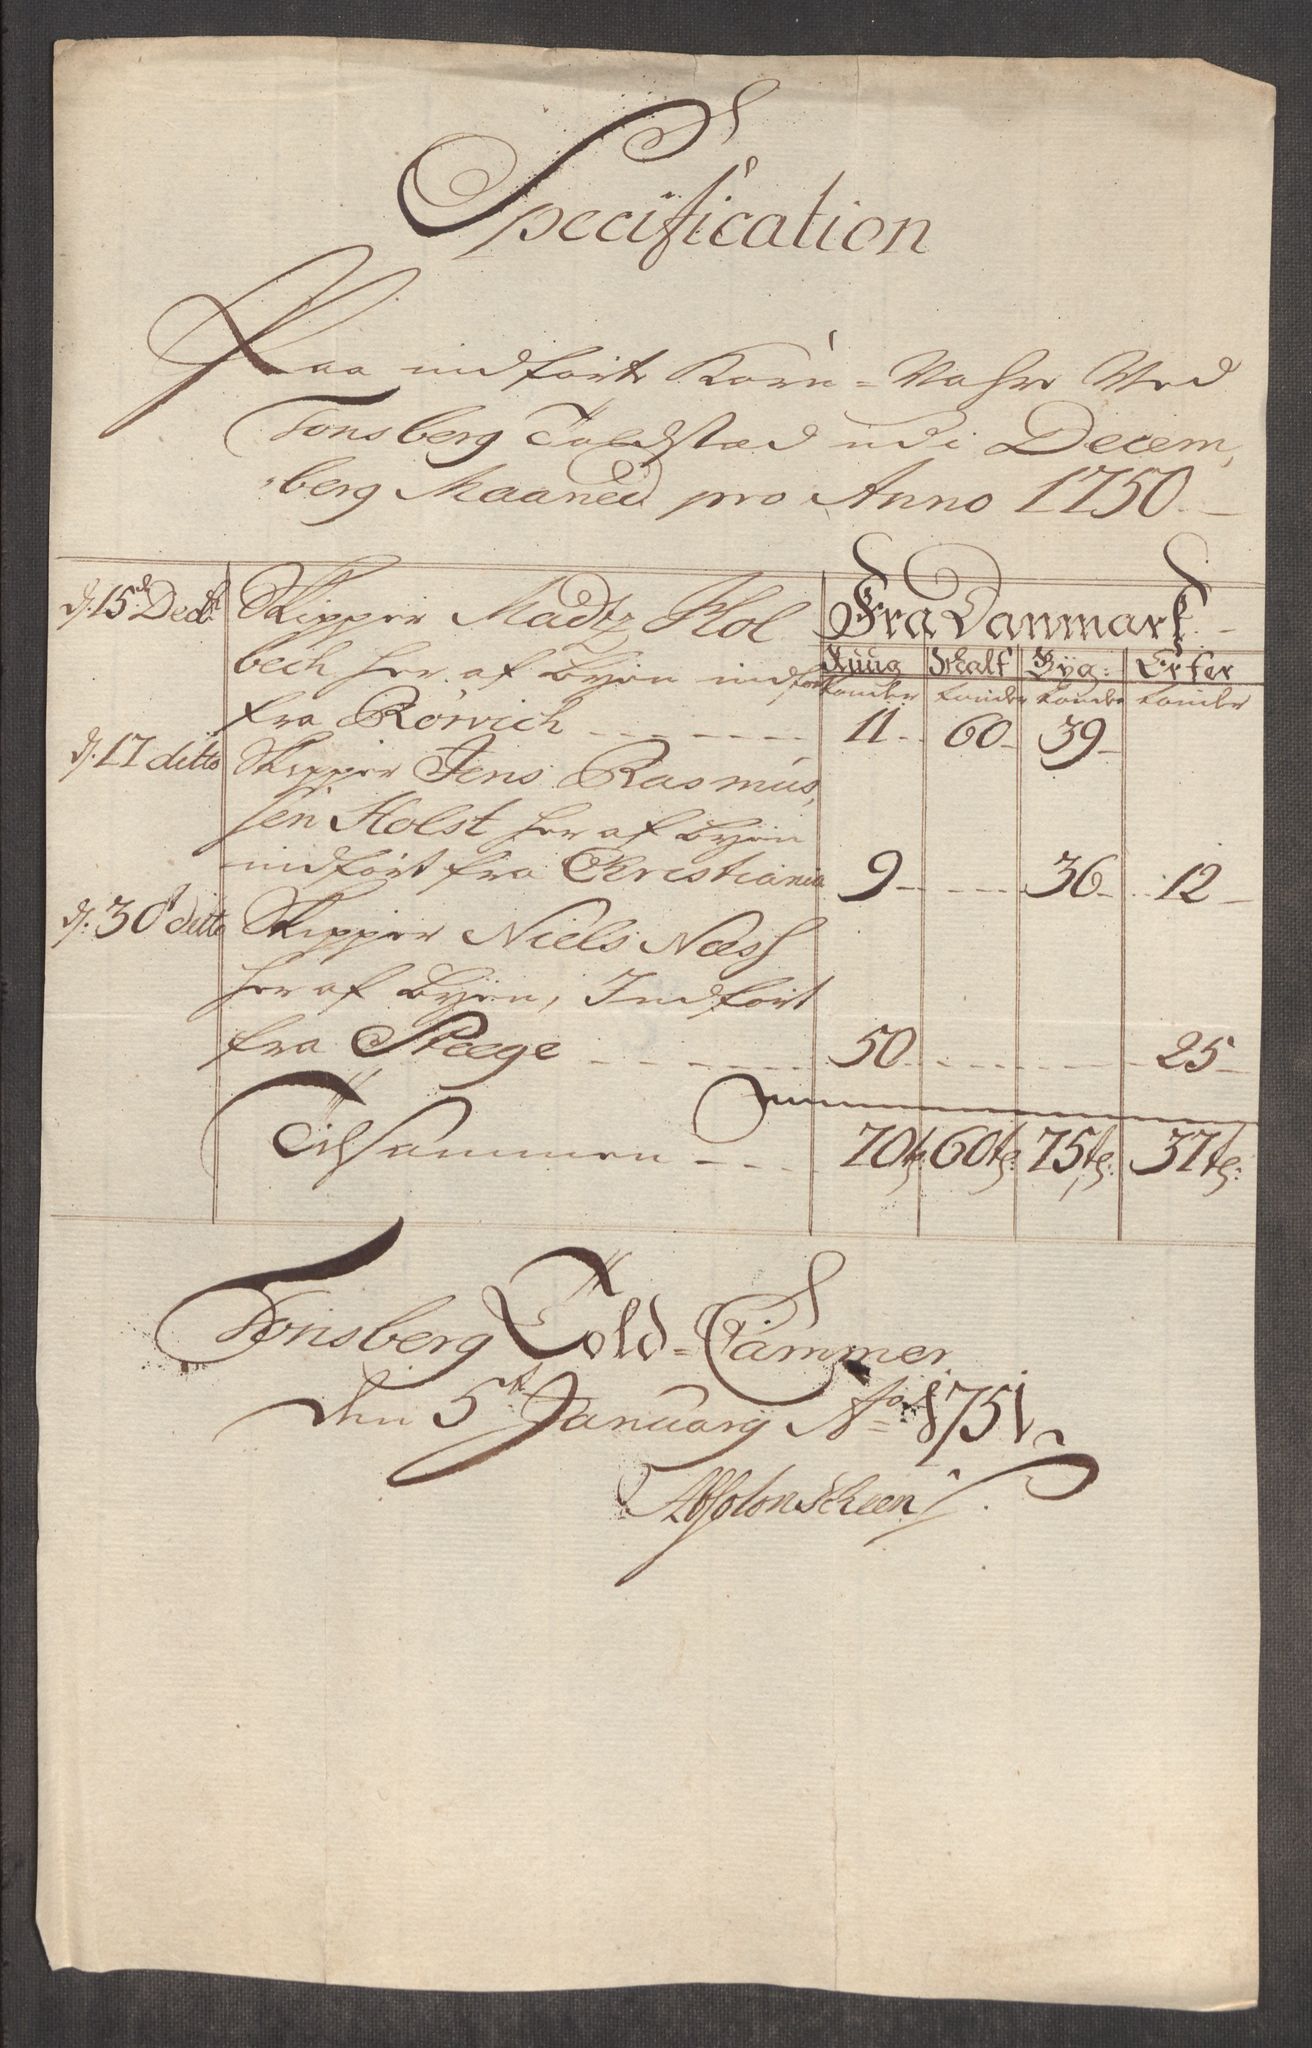 Specification
Paa indförte Korn-Vahre Ved
Tonsberg Toldstæd udi Decem,
berg Maaned pro Anno 1750
Fra Danmark
Ruug Malt Byg: Erter
tönder tönder tönder tönder
d. 15de Decbr Skipper Madtz Hol
bech her af Byen indfört
fra Rörvich 11 60 39
d. 17 ditto Skipper Jens Rasmus,
sen Holst her af Byen
indfört fra Christiania 9 36 12
d. 30t ditto Skipper Niels Næss
her af Byen, Indfört
fra Stæge 50 25
Tilsammen 70 tr: 60 tr: 75 tr: 37 tr:
Tonsberg Told-Cammer
den 5t January Ao 1751
Absolon Scheen